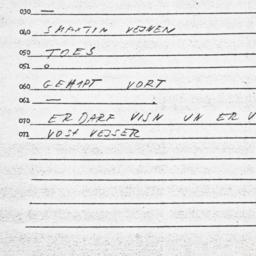 030 —
040 SMARTIN VEJNEN
050 TOES
051 0
060 GEHAPT VORT
061 —
070 ER DARF VISN UN ER V
071 VOST VEJSER